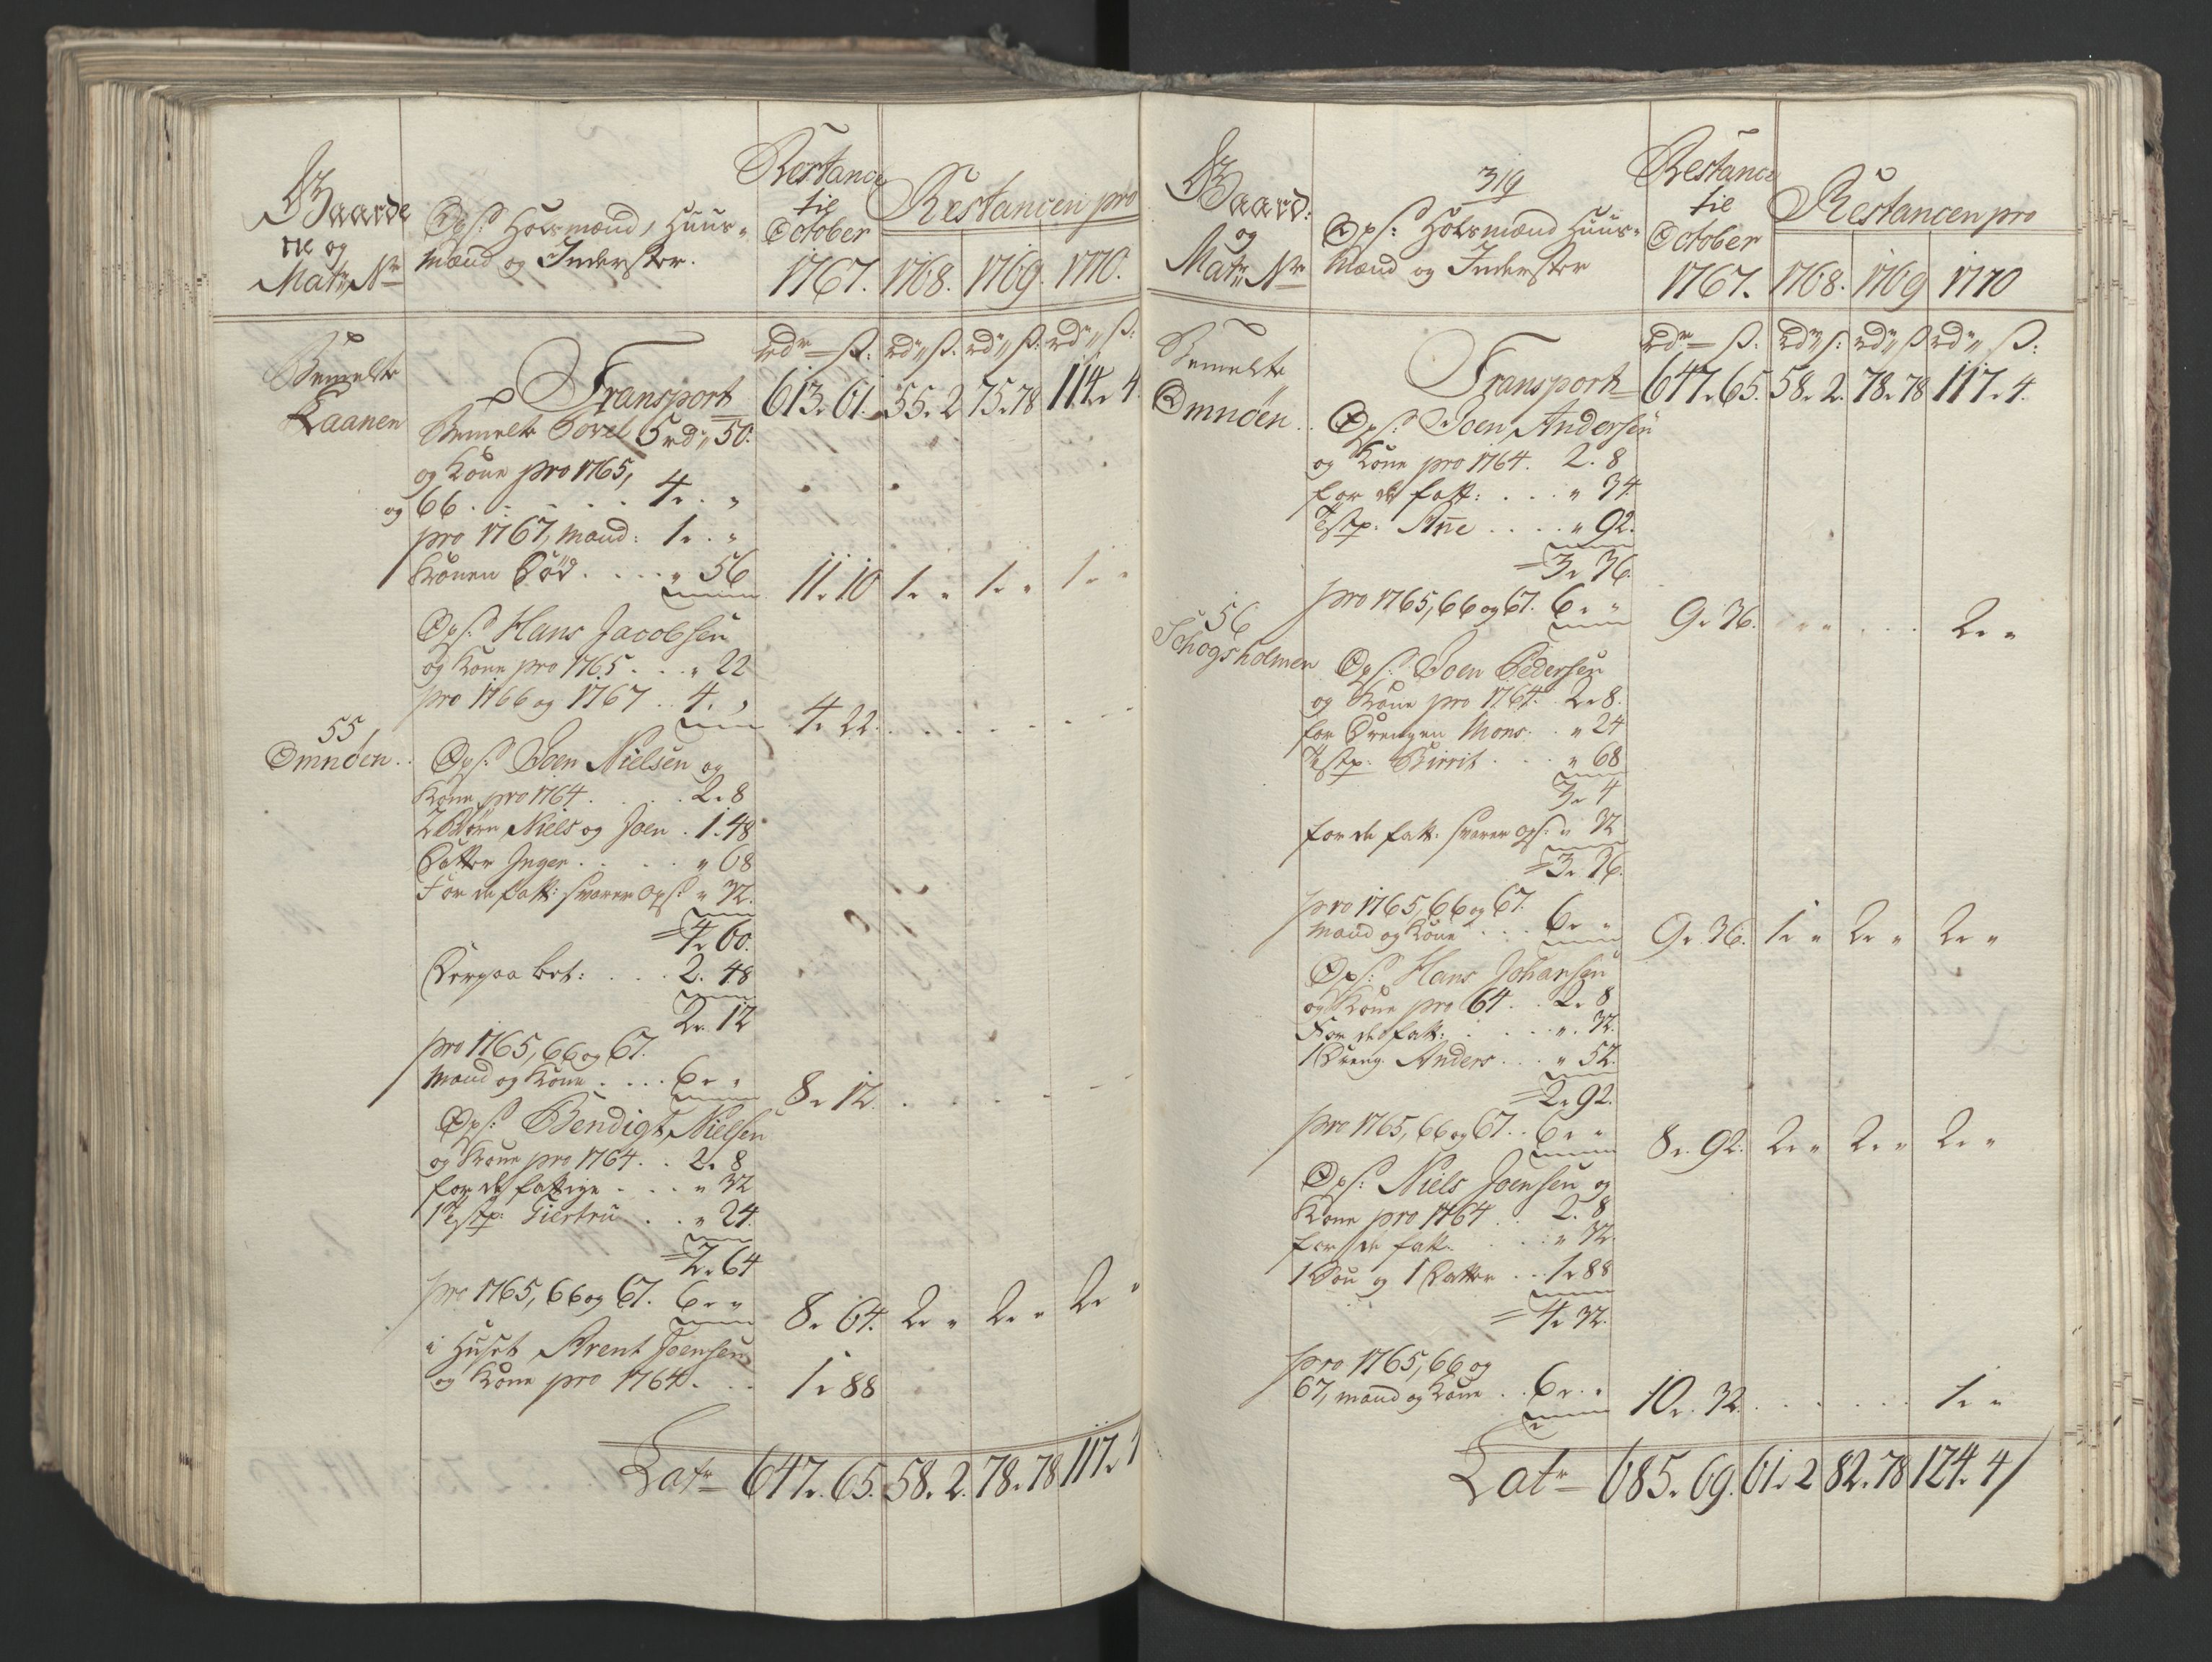 Gaarde
ne og
Matr. Nr
Ops: Holsmænd, Huus-
mænd og Inderster.
Restance
til
October
1767.
Restancen pro
1768. 1769. 1770.
Bemelte
Laanen
rdr ß: rd" ß. rd" ß: rd" ß:
Transport 613. 61. 55. 2 75. 78 114. 4
Bemelte Povel 5 rd" 50.
og Kone pro 1765,
og 66 . . . . 4. "
pro 1767, mand: 1. "
Konen Død . . . " 56 11. 10 1. " 1. " 1. "
Ops: Hans Jacobsen
og Kone pro 1765 . . . " 22
pro 1766 og 1767 . . 4. " 4. 22.
55
Omnøen
Ops: Joen Nielsen og
Kone pro 1764 . . . . 2. 8
2 Børn Niels og Joen . 1. 48
Datter Inger . . . . " 68
For de fatt: svarer Ops: " 32.
= 4. 60.
Derpaa bet: . . . 2. 48
2. 12
pro 1765, 66 og 67.
Mand og Kone . . . . 6. " 8. 12.
Ops: Bendigt Nielsen
og Kone pro 1764 . . 2. 8
for de fattige . . . " 32
1 Tjstp: Giertru . . . " 24.
= 2. 64
pro 1765, 66 og 67. 6. " 8. 64. 2. " 2. " 2. "
i Huset Arent Joensen
og Kone pro 1764 . . . 1. 88
Latr 647. 65. 58. 2. 78. 78 117.
319
Gaard:
og
Matr. Nr
Ops: Holsmænd Huus-
mænd og Inderster
Restance
til
October
1767.
Restancen pro
1768. 1769 1770
Bemelte
Omnøen
rdr ß. rd" ß: rd" ß rd" ß:
Transport 647. 65. 58. 2. 78. 78 117. 4.
Ops: Joen Andersen
og Kone pro 1764. 2. 8
for de fatt: . . . " 34
Tjstp: Ane . . . . " 92.
= 3. 36.
pro 1765, 66 og 67. 6. " 9. 36. " " . . . 2. "
56
Schogsholmen
Ops: Joen Pedersen
og Kone pro 1764. 2. 8.
for Drengen Mons. . " 24
Tjstp: Birrit . . . " 68
3. 4
for de fatt: svarer Ops: " 32
= 3. 36.
pro 1765, 66 og 67.
Mand og Kone . . . 6. " 9. 36. 1. " 2. " 2. "
Ops: Hans Johansen
og Kone pro 64 . . 2. 8
For de fatt: . . . . . " 32.
1 Dreng Anders . . . " 52.
= 2. 92.
pro 1765, 66 og 67. . 6. " 8. 92. 2. " 2. " 2. "
Ops: Niels Joensen og
Kone pro 1764 . . 2. 8
for de fatt. . . . " 32.
1 Søn og 1 Datter . . 1. 88
= 4. 32.
pro 1765, 66 og
67, mand og Kone . . 6. " 10. 32. . . . . . 1. "
Latr 685. 69. 61. 2 82. 78 124. 4